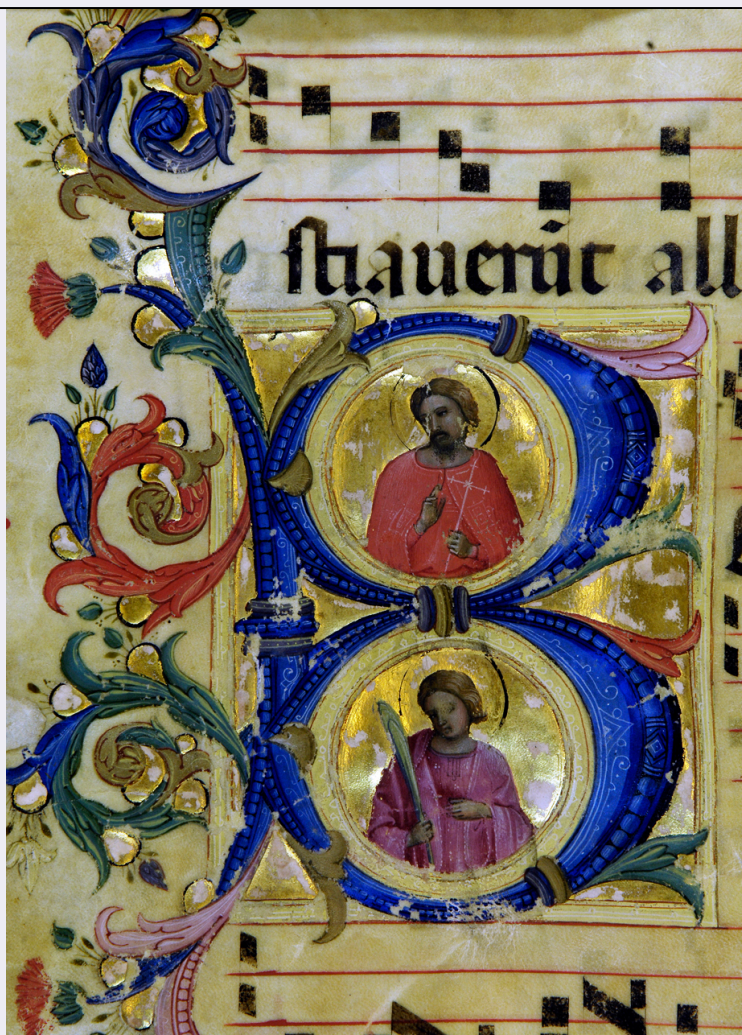 ſtiauerūt all
B